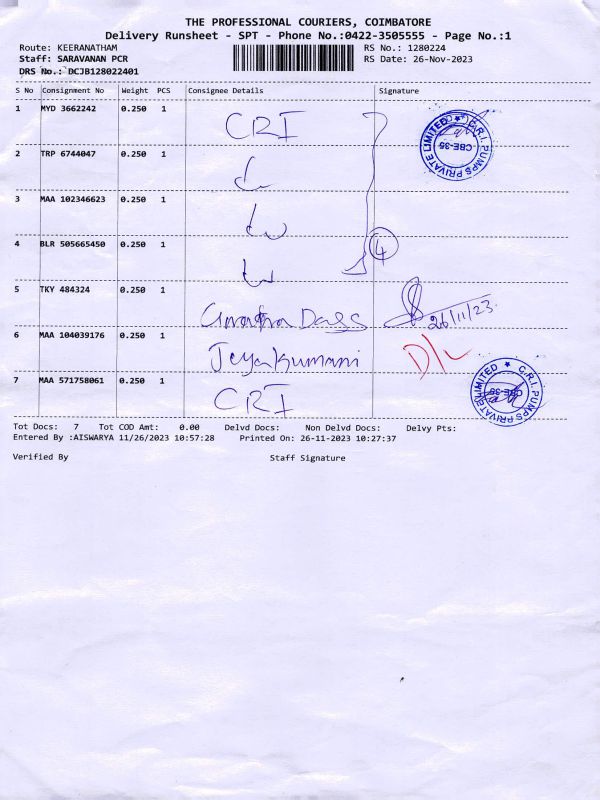 THE PROFESSIONAL COURIERS, COIMBATORE
Delivery Runsheet - SPT - Phone No.:0422-3505555 - Page No.:1
Route: KEERANATHAM RS No.: 1280224
Staff: SARAVANAN PCR RS Date: 26-Nov-2023
DRS No.: DCJB128022401
S No Consignment No Weight PCS Consignee Details Signature
1 MYD 3662242 0.250 1 CRI
C.R.I. PUMPS PRIVATE LIMITED ★ CBE-35
2 TRP 6744047 0.250 1
3 MAA 102346623 0.250 1
4 BLR 505665450 0.250 1 4
5 TKY 484324 0.250 1 Dass 26/11/23
6 MAA 104039176 0.250 1 Jeyakumari D/L
7 MAA 571758061 0.250 1 CRI
C.R.I. PUMPS PRIVATE LIMITED ★ CBE-35
Tot Docs: 7 Tot COD Amt: 0.00 Delvd Docs: Non Delvd Docs: Delvy Pts:
Entered By :AISWARYA 11/26/2023 10:57:28 Printed On: 26-11-2023 10:27:37
Verified By Staff Signature